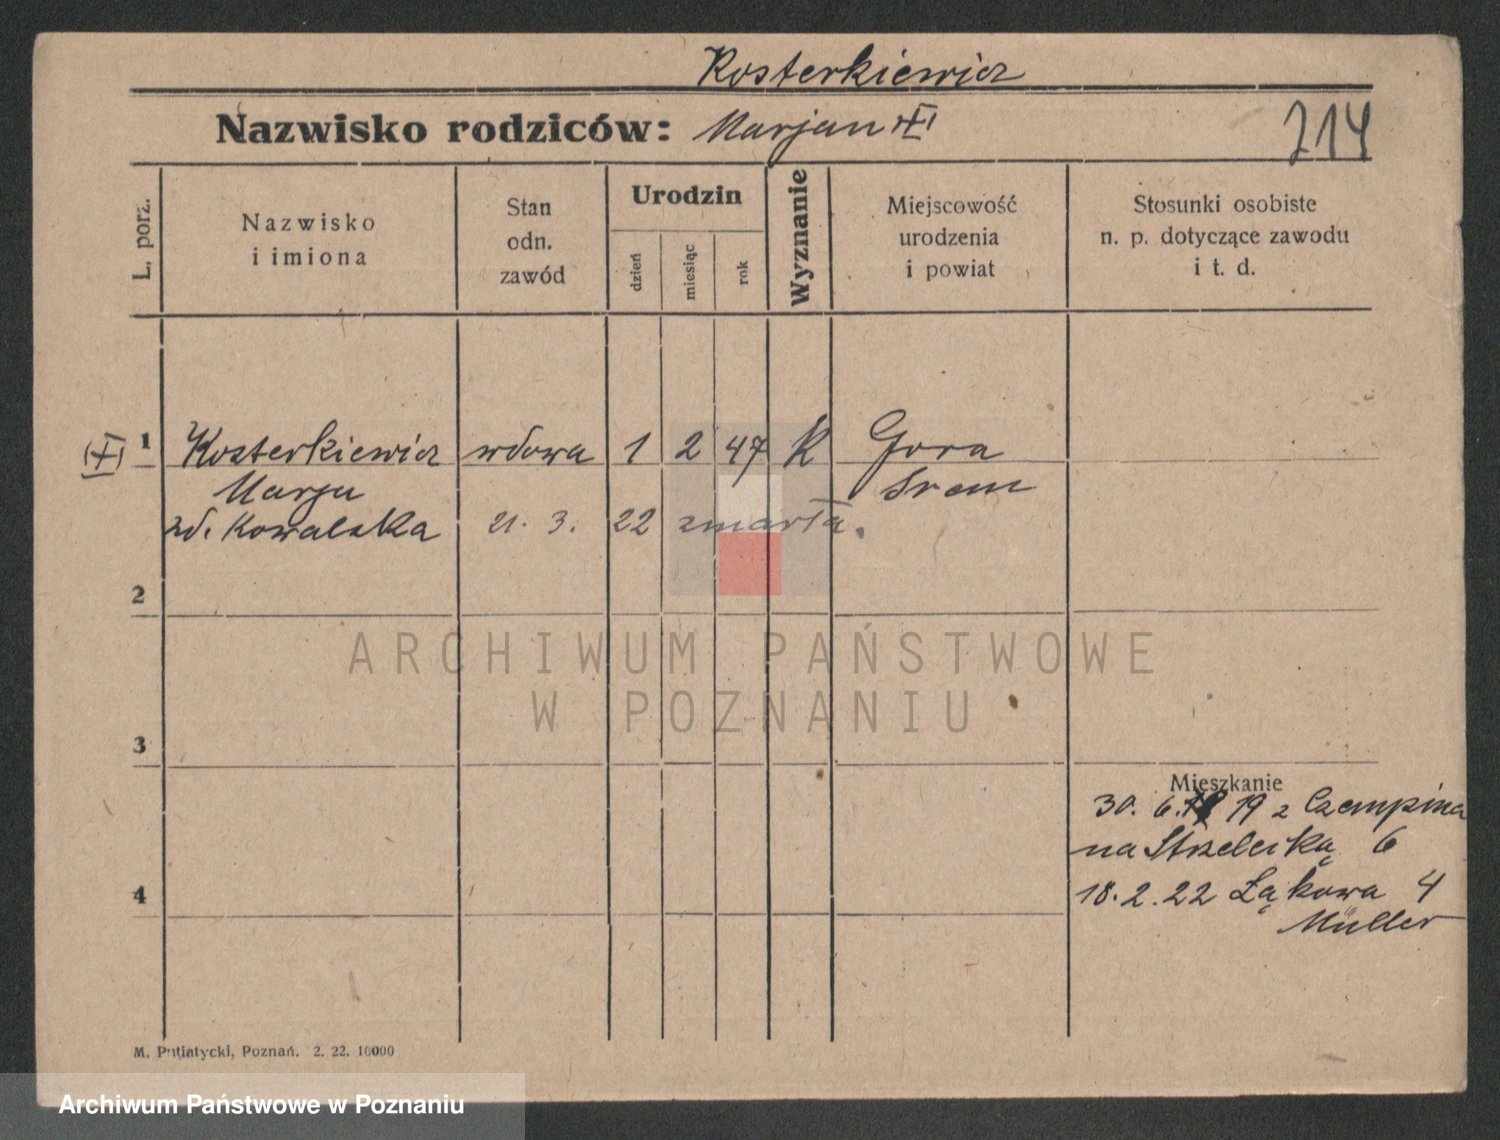 Kosterkiewicz
Nazwisko rodziców: Marjan
214
L. porz.
Nazwisko
i imiona
Stan
odn.
zawód
Urodzin
dzień
miesiąc
rok
Wyznanie
Miejscowość
urodzenia
i powiat
Stosunki osobiste
n. p. dotyczące zawodu
i t. d.
1 Kosterkiewicz wdowa 1 2 47 K Gora
Marja Srem
zd. Kowalska 21. 3. 22 zmarła.
2
ARCHIWUM PAŃSTWOWE
W POZNANIU
3
Mieszkanie
30. 6. 19 z Czempina
na Strzelecką 6
4
18. 2. 22 Łąkowa 4
Müller
M. Putiatycki, Poznań. 2. 22. 10000
Archiwum Państwowe w Poznaniu